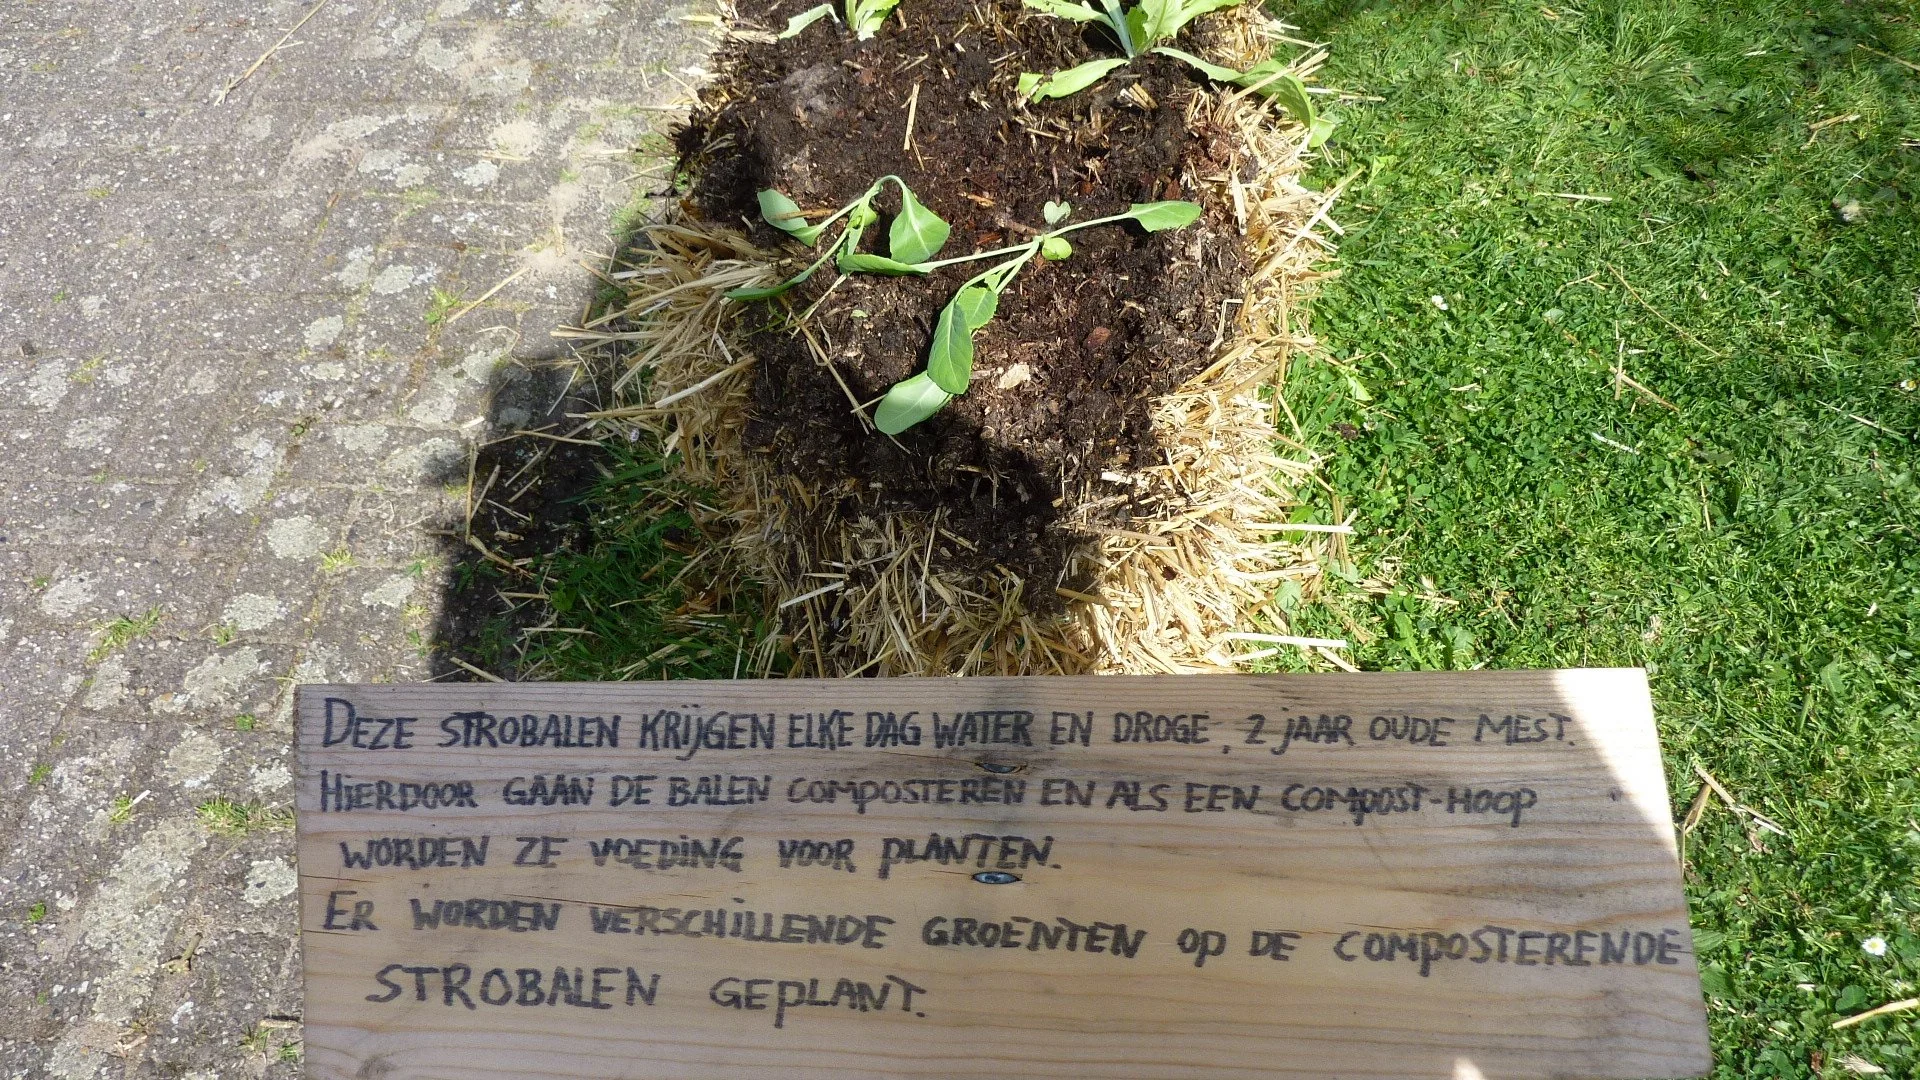 DEZE STROBALEN KRIJGEN ELKE DAG WATER EN DROGE, 2 JAAR OUDE MEST.
HIERDOOR GAAN DE BALEN COMPOSTEREN EN ALS EEN COMPOST-HOOP
WORDEN ZE VOEDING VOOR PLANTEN.
ER WORDEN VERSCHILLENDE GROENTEN OP DE COMPOSTERENDE
STROBALEN GEPLANT.